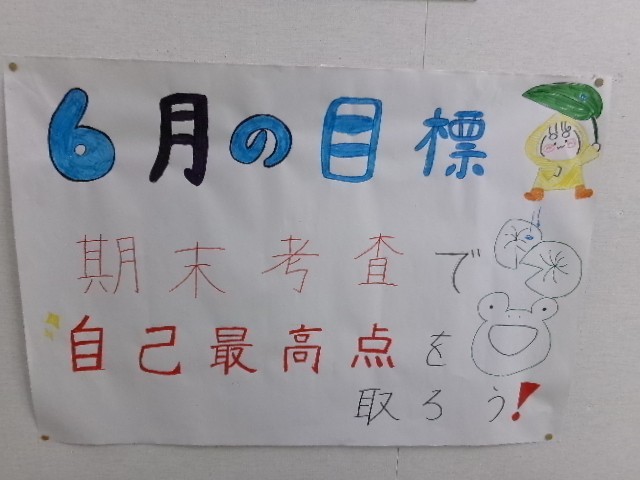 6月の目標
期末考査で
自己最高点を
取ろう!